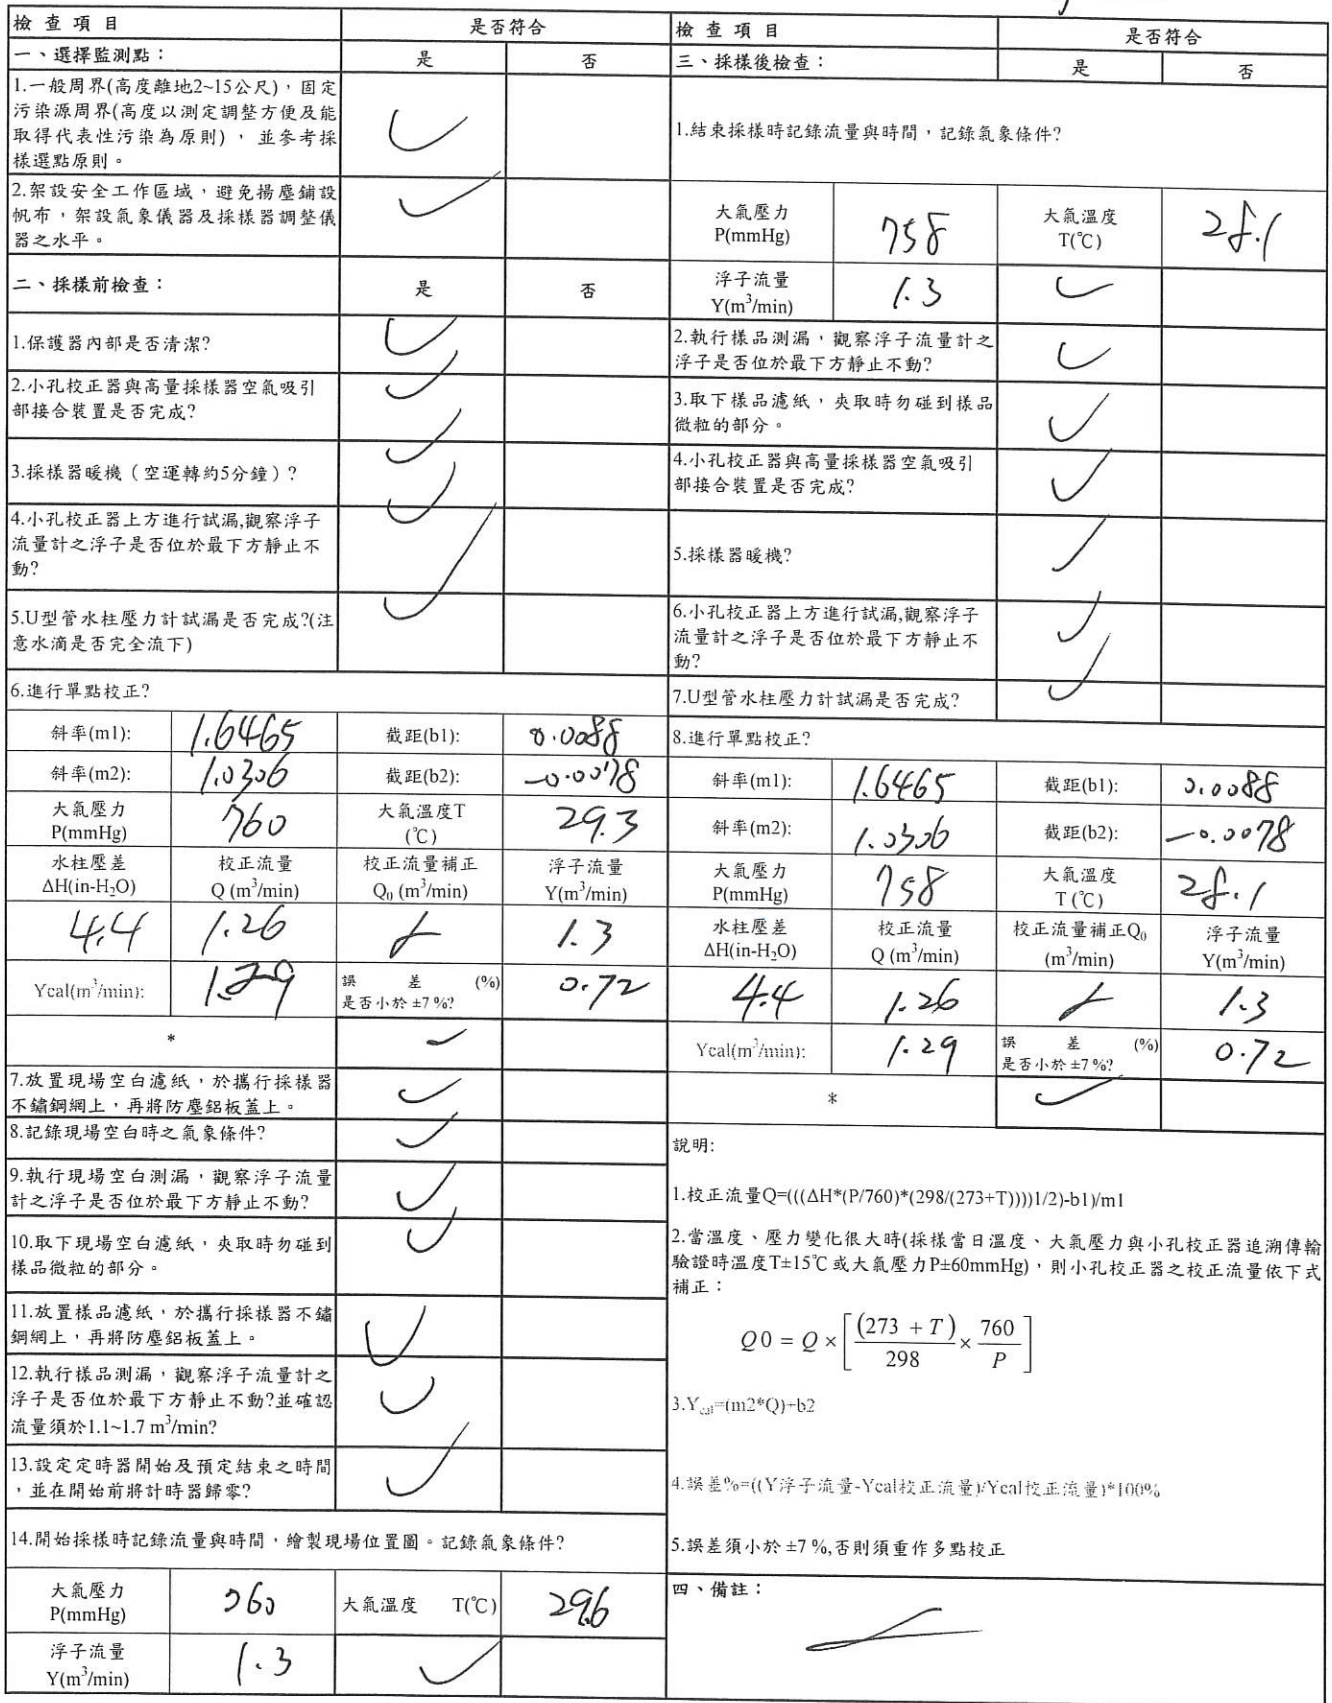 檢 查 項 目 是否符合
一、選擇監測點： 是 否
1.一般周界(高度離地2~15公尺)，固定
污染源周界(高度以測定調整方便及能
取得代表性污染為原則) ， 並參考採
樣選點原則。 ✓
2.架設安全工作區域，避免揚塵鋪設
帆布，架設氣象儀器及採樣器調整儀
器之水平。 ✓
二、採樣前檢查： 是 否
1.保護器內部是否清潔? ✓
2.小孔校正器與高量採樣器空氣吸引
部接合裝置是否完成? ✓
3.採樣器暖機（空運轉約5分鐘）? ✓
4.小孔校正器上方進行試漏,觀察浮子
流量計之浮子是否位於最下方靜止不
動? ✓
5.U型管水柱壓力計試漏是否完成?(注
意水滴是否完全流下) ✓
6.進行單點校正?
斜率(m1): 1.6465 截距(b1): 0.0088
斜率(m2): 1.0306 截距(b2): -0.0078
大氣壓力 大氣溫度T
P(mmHg) 760 (℃) 29.3
水柱壓差 校正流量 校正流量補正 浮子流量
ΔH(in-H₂O) Q (m³/min) Q₀ (m³/min) Y(m³/min)
4.4 1.26 1.3
Ycal(m³/min): 1.29 誤 差 (%) 0.72
是否小於 ±7 %?
* ✓
7.放置現場空白濾紙，於攜行採樣器
不鏽鋼網上，再將防塵鋁板蓋上。 ✓
8.記錄現場空白時之氣象條件? ✓
9.執行現場空白測漏，觀察浮子流量
計之浮子是否位於最下方靜止不動? ✓
10.取下現場空白濾紙，夾取時勿碰到
樣品微粒的部分。 ✓
11.放置樣品濾紙，於攜行採樣器不鏽
鋼網上，再將防塵鋁板蓋上。 ✓
12.執行樣品測漏，觀察浮子流量計之
浮子是否位於最下方靜止不動?並確認
流量須於1.1~1.7 m³/min? ✓
13.設定定時器開始及預定結束之時間
，並在開始前將計時器歸零? ✓
14.開始採樣時記錄流量與時間，繪製現場位置圖。記錄氣象條件?
大氣壓力
P(mmHg) 760 大氣溫度 T(℃) 29.6
浮子流量
Y(m³/min) 1.3 ✓
檢 查 項 目 是否符合
三、採樣後檢查： 是 否
1.結束採樣時記錄流量與時間，記錄氣象條件?
大氣壓力 大氣溫度
P(mmHg) 758 T(℃) 28.1
浮子流量
Y(m³/min) 1.3 ✓
2.執行樣品測漏，觀察浮子流量計之
浮子是否位於最下方靜止不動? ✓
3.取下樣品濾紙，夾取時勿碰到樣品
微粒的部分。 ✓
4.小孔校正器與高量採樣器空氣吸引
部接合裝置是否完成? ✓
5.採樣器暖機? ✓
6.小孔校正器上方進行試漏,觀察浮子
流量計之浮子是否位於最下方靜止不
動? ✓
7.U型管水柱壓力計試漏是否完成? ✓
8.進行單點校正?
斜率(m1): 1.6465 截距(b1): 0.0088
斜率(m2): 1.0306 截距(b2): -0.0078
大氣壓力 大氣溫度
P(mmHg) 758 T (℃) 28.1
水柱壓差 校正流量 校正流量補正Q₀ 浮子流量
ΔH(in-H₂O) Q (m³/min) (m³/min) Y(m³/min)
4.4 1.26 1.3
Ycal(m³/min): 1.29 誤 差 (%) 0.72
是否小於 ±7 %?
* ✓
說明:
1.校正流量Q=(((ΔH*(P/760)*(298/(273+T))))1/2)-b1)/m1
2.當溫度、壓力變化很大時(採樣當日溫度、大氣壓力與小孔校正器追溯傳輸
驗證時溫度T±15℃或大氣壓力P±60mmHg)，則小孔校正器之校正流量依下式
補正：
Q0 = Q × [ (273 + T) / 298 × 760 / P ]
3.Ycal=(m2*Q)+b2
4.誤差%=((Y浮子流量-Ycal校正流量)/Ycal校正流量)*100%
5.誤差須小於 ±7 %,否則須重作多點校正
四、備註：